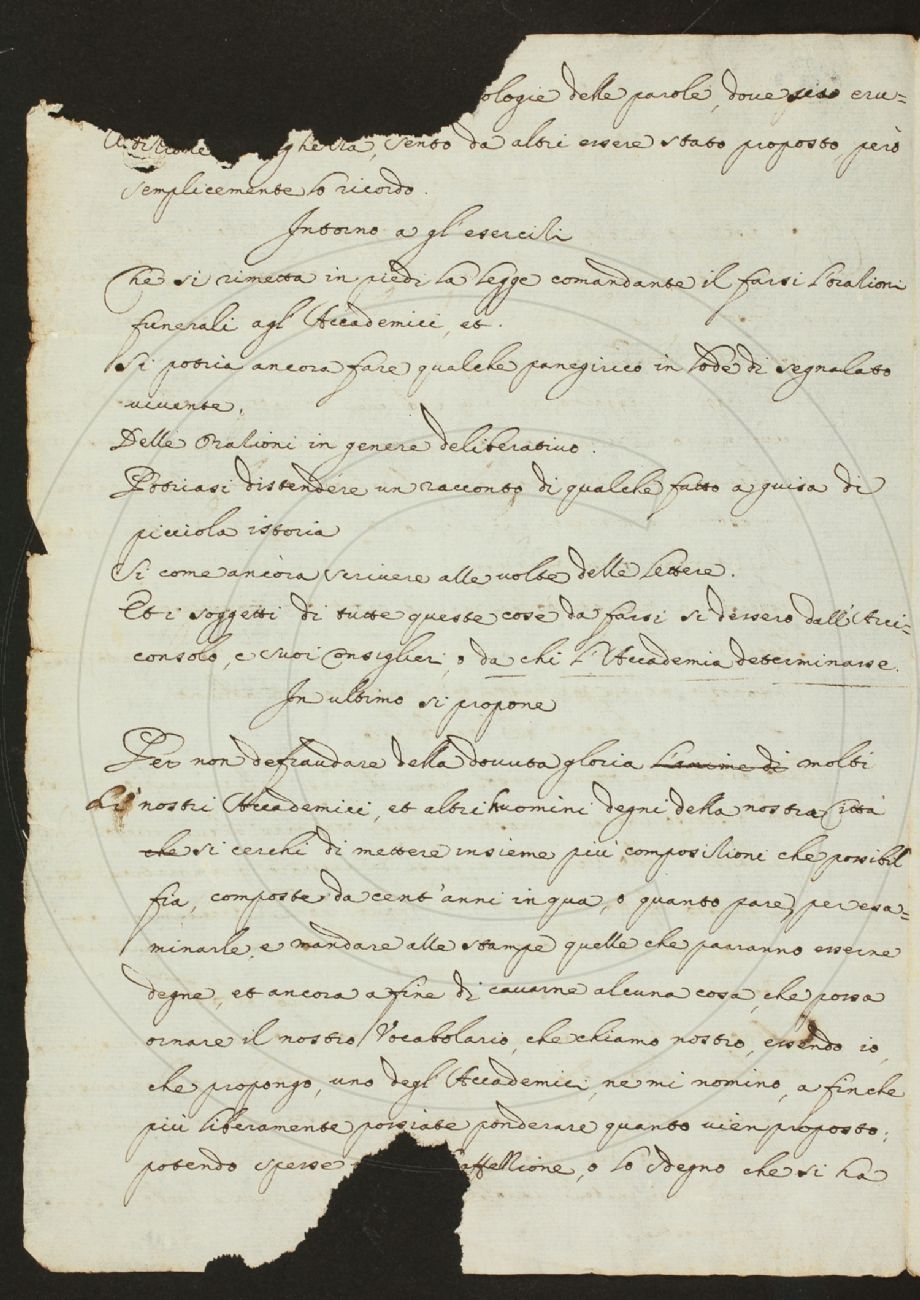 ologie delle parole, dove sia eru=
ditione ghezza, sento da altri essere stato proposto, però
semplicemente lo ricordo.
Intorno a gl'esercizi
Che si rimetta in piedi la legge comandante il farsi l'orazioni
funerali agl'Accademici, et.
Si potria ancora fare qualche panegirico in lode di segnalato
vivente.
Delle Orazioni in genere deliberativo.
Potriasi distendere un racconto di qualche fatto a guisa di
picciola istoria
Si come ancora scrivere alle volte delle lettere.
Et i soggetti di tutte queste cose da farsi si dessero dall'Arci=
consolo, e suoi Consiglieri, o da chi l'Accademia determinasse.
In ultimo si propone
Per non defraudare della dovuta gloria di molti
Li nostri Accademici, et altri huomini degni della nostra Città
che si cerchi di mettere insieme più composizioni che possibil
fia, composte da cent'anni in qua, o quanto pare, per esa=
minarle, e mandare alle stampe quelle che parranno esserne
degne, et ancora a fine di cavarne alcuna cosa, che possa
ornare il nostro Vocabolario, che chiamo nostro, essendo io,
che propongo, uno degl'Accademici, ne mi nomino, a finche
più liberamente possiate ponderare quanto vien proposto;
potendo spesse l'affezzione, o lo sdegno che si ha